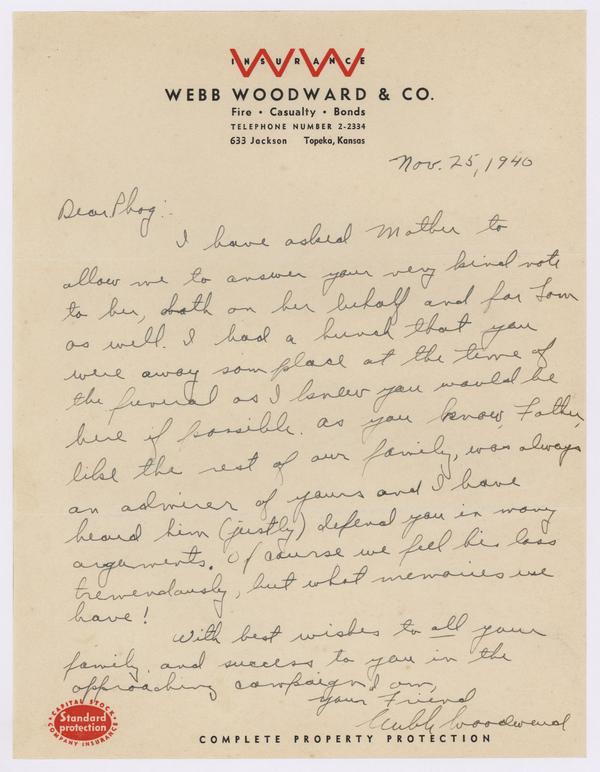 INSURANCE
WEBB WOODWARD & CO.
Fire • Casualty • Bonds
TELEPHONE NUMBER 2-2334
633 Jackson Topeka, Kansas
Nov. 25, 1940
Dear Phog:
I have asked Mother to
allow me to answer your very kind note
to her, both on her behalf and for Tom
as well. I had a hunch that you
were away some place at the time of
the funeral as I knew you would be
here if possible. As you know, Father,
like the rest of our family, was always
an admirer of yours and I have
heard him (justly) defend you in many
arguments. Of course we feel his loss
tremendously, but what memories we
have!
With best wishes to all your
family, and success to you in the
approaching campaign I am,
your Friend
Webb Woodward
CAPITAL STOCK
Standard
protection
COMPANY INSURANCE
COMPLETE PROPERTY PROTECTION